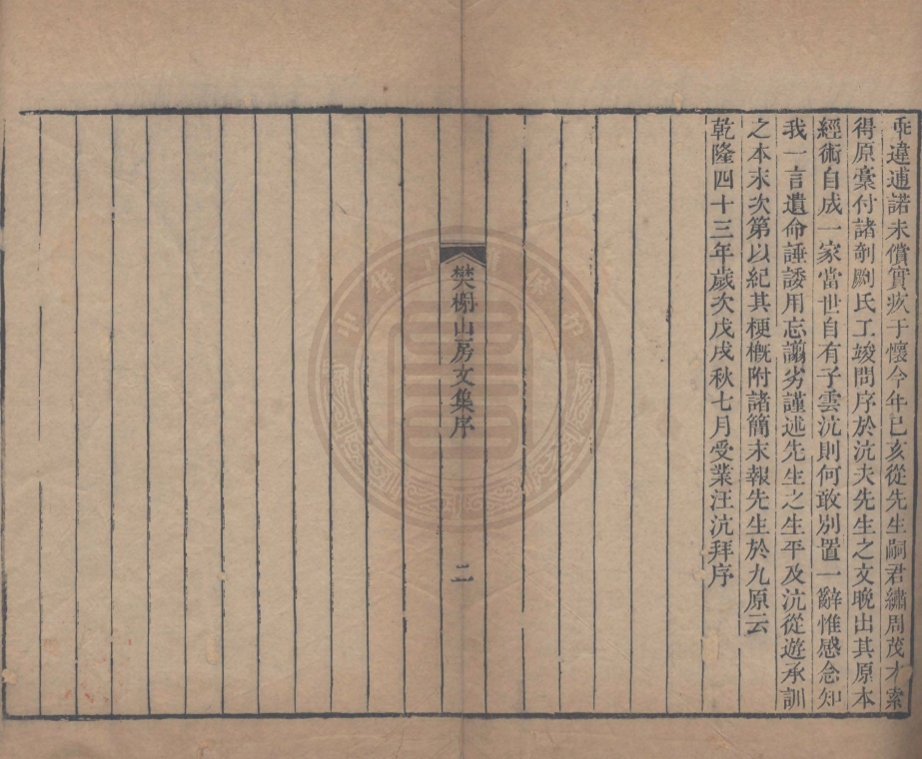 乖違逋諾未償實疚于懷今年己亥從先生嗣君繡周茂才索
得原稾付諸剞劂氏工竣問序於沆夫先生之文晚出其原本
經術自成一家當世自有子雲沆則何敢別置一辭惟感念知
我一言遺命諈諉用忘譾劣謹述先生之生平及沆從遊承訓
之本末次第以紀其梗概附諸簡末報先生於九原云
乾隆四十三年歲次戊戌秋七月受業汪沆拜序
樊榭山房文集序
二